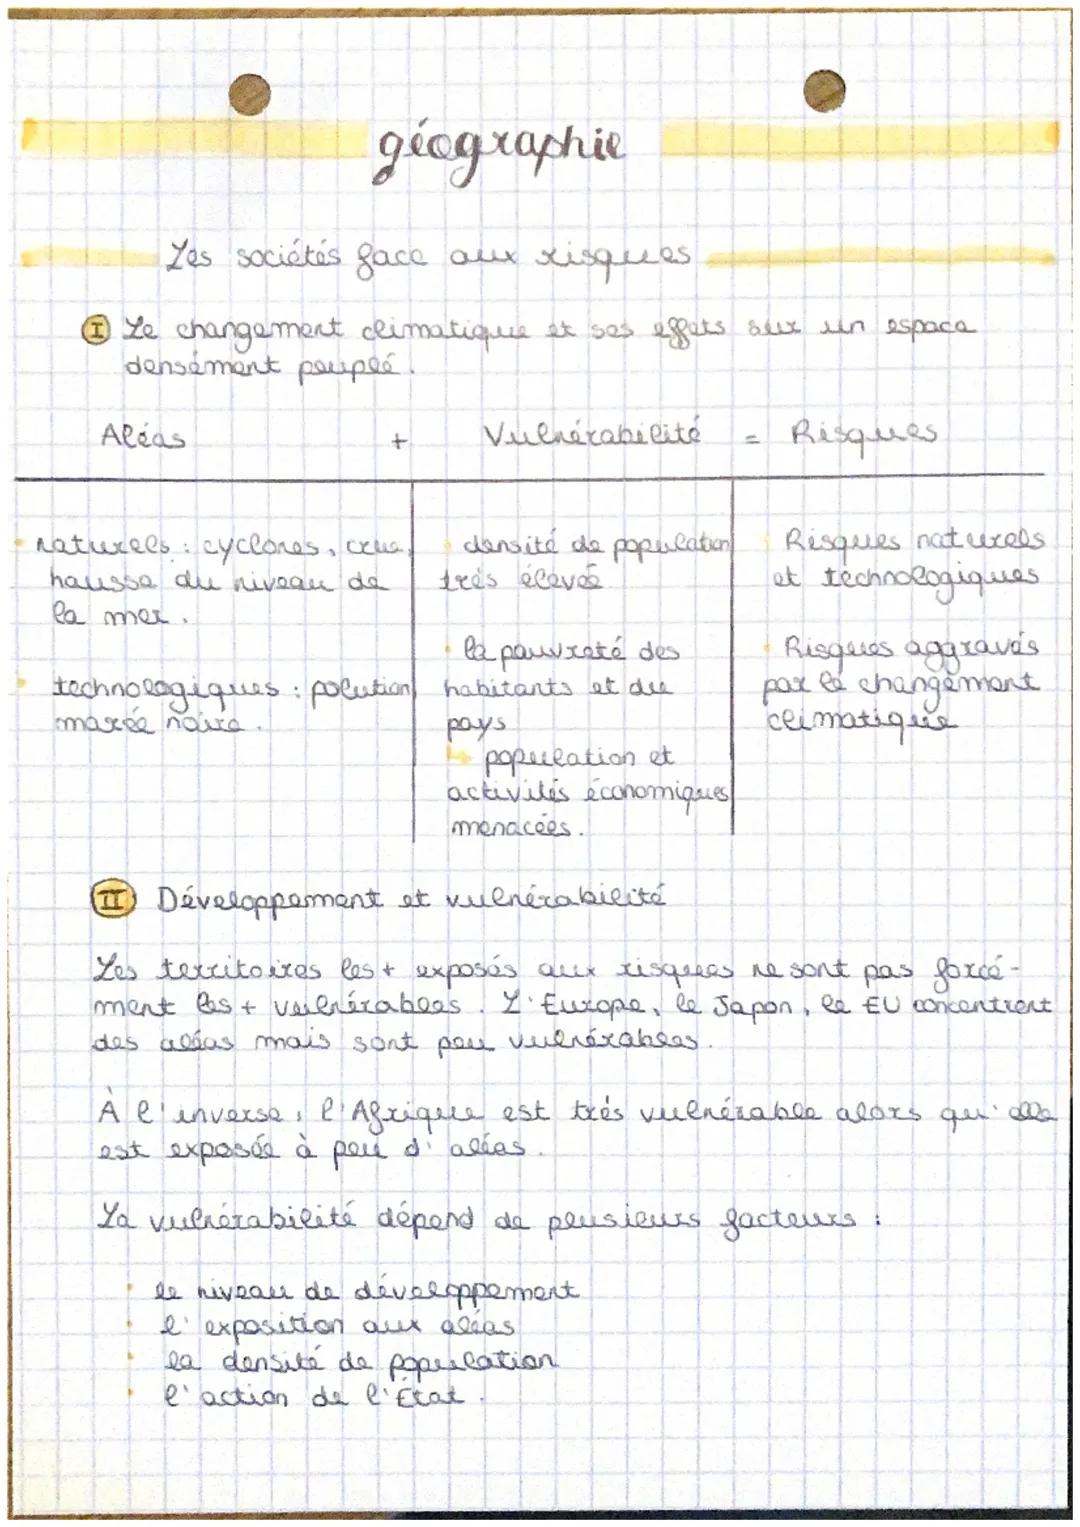 géographie
Les sociétés face aux risques
I Le changement climatique et ses effets sur un espace
densément peuplé.
Aléas + Vulnérabilité = Risques
naturels : cyclones, crue,
hausse du niveau de
la mer.
technologiques : polution
marée noire.
densité de population
très élevée
la pauvreté des
habitants et du
pays
↳ population et
activités économiques
menacées.
Risques naturels
et technologiques
Risques aggravés
par le changement
climatique
II Développement et vulnérabilité
Les territoires les + exposés aux risques ne sont pas forcé-
ment les + vulnérables. L'Europe, le Japon, le EU concentrent
des aléas mais sont peu vulnérables.
À l'inverse, l'Afrique est très vulnérable alors qu'elle
est exposée à peu d'aléas.
La vulnérabilité dépend de plusieurs facteurs :
le niveau de développement
l'exposition aux aléas
la densité de population
l'action de l'État.